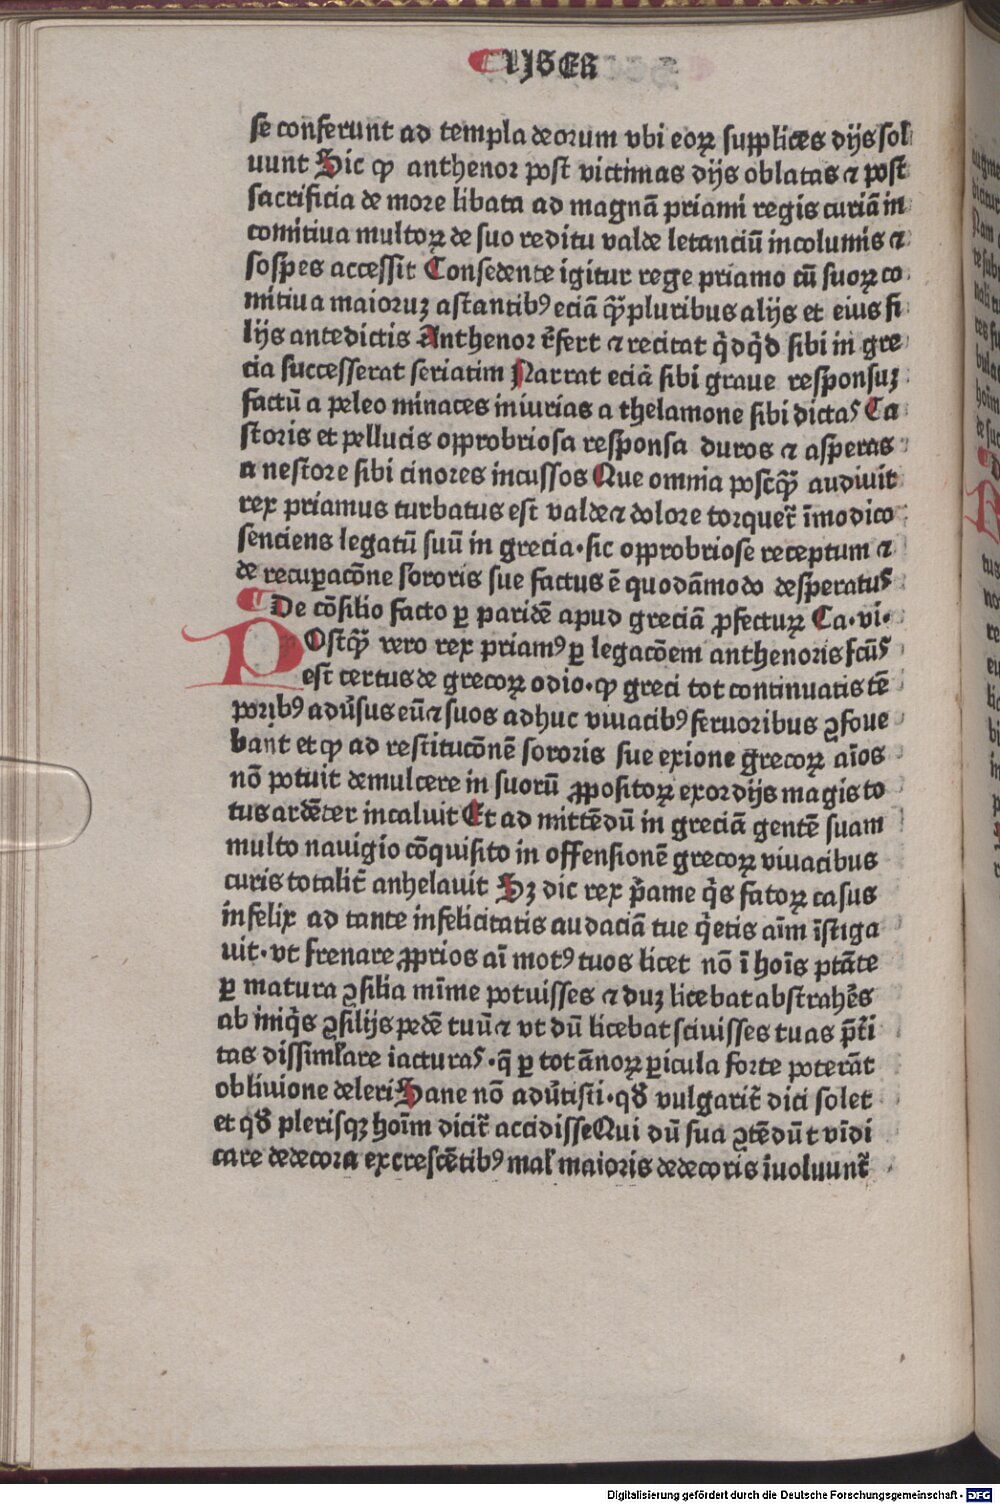 LIBER
se conferunt ad templa deorum vbi eoꝝ supplices dijs sol
uunt Sic ꝙ anthenor post victimas dijs oblatas ⁊ post
sacrificia de more libata ad magnā priami regis curiā in
comitiua multoꝝ de suo reditu valde letanciū incolumis ⁊
sospes accessit Consedente igitur rege priamo cū suoꝝ co
mitiua maioruꝫ astantibꝰ eciā ꝙ̄pluribus alijs et eius fi
lijs antedictis Anthenor r̄fert ⁊ recitat q̇dq̇d sibi in gre
cia successerat seriatim Narrat eciā sibi graue responsuꝫ
factū a peleo minaces iniurias a thelamone sibi dictas Ca
storis et pellucis opprobriosa responsa duros ⁊ asperas
a nestore sibi cinores incussos Que omnia postꝙ̄ audiuit
rex priamus turbatus est valde ⁊ dolore torquet̄ īmodico
senciens legatū suū in grecia·sic opprobriose receptum ⁊
de recuꝑacōne sororis sue factus ē quodāmodo desperatus
De cōsilio facto ꝑ paridē apud greciā ꝓfectuꝝ Ca·vi·
POstꝙ̄ vero rex priamꝰ ꝑ legacōem anthenoris fcūs
est certus de grecoꝝ odio·ꝙ greci tot continuatis tē
poribꝰ adūsus eū ⁊ suos adhuc viuacibꝰ feruoribus ꝯfoue
bant et ꝙ ad restitucōnē sororis sue exione grecoꝝ aīos
nō potuit demulcere in suorū ꝓpositoꝝ exordijs magis to
tus ardēter incaluit Et ad mittēdū in greciā gentē suam
multo nauigio cōquisito in offensionē grecoꝝ viuacibus
curis totalit̄ anhelauit Sꝫ dic rex p̄ame q̇s fatoꝝ casus
infelix ad tante infelicitatis audaciā tue q̇etis aīm īstiga
uit·vt frenare ꝓprios aī motꝰ tuos licet nō ī hoīs ptāte
ꝑ matura ꝯsilia mīme potuisses ⁊ duꝫ licebat abstrahēs
ab iniq̇s ꝯsilijs pedē tuū ⁊ vt dū licebat sciuisses tuas p̄t̄i
tas dissimłare iacturas·q̄ ꝑ tot ānoꝝ ꝑicula forte poterāt
obliuione deleri Sane nō adūtisti·qđ vulgarit̄ dici solet
et qđ plerisqꝫ hoīm dicit̄ accidisse Qui dū sua ꝯtēdūt vīdi
care dedecora excrescētibꝰ mał maioris dedecoris īuoluunt̄